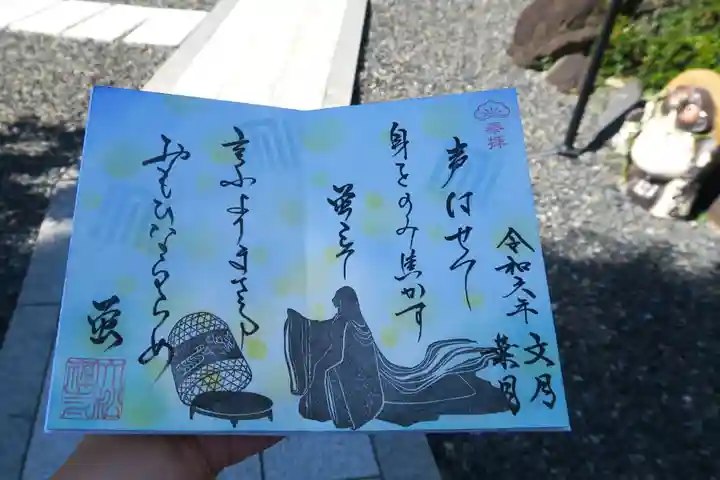 参拝
令和六年
文月
葉月
声はせで
身をのみ焦がす
蛍こそ
言ふよりまさる
おもひなるらめ
蛍